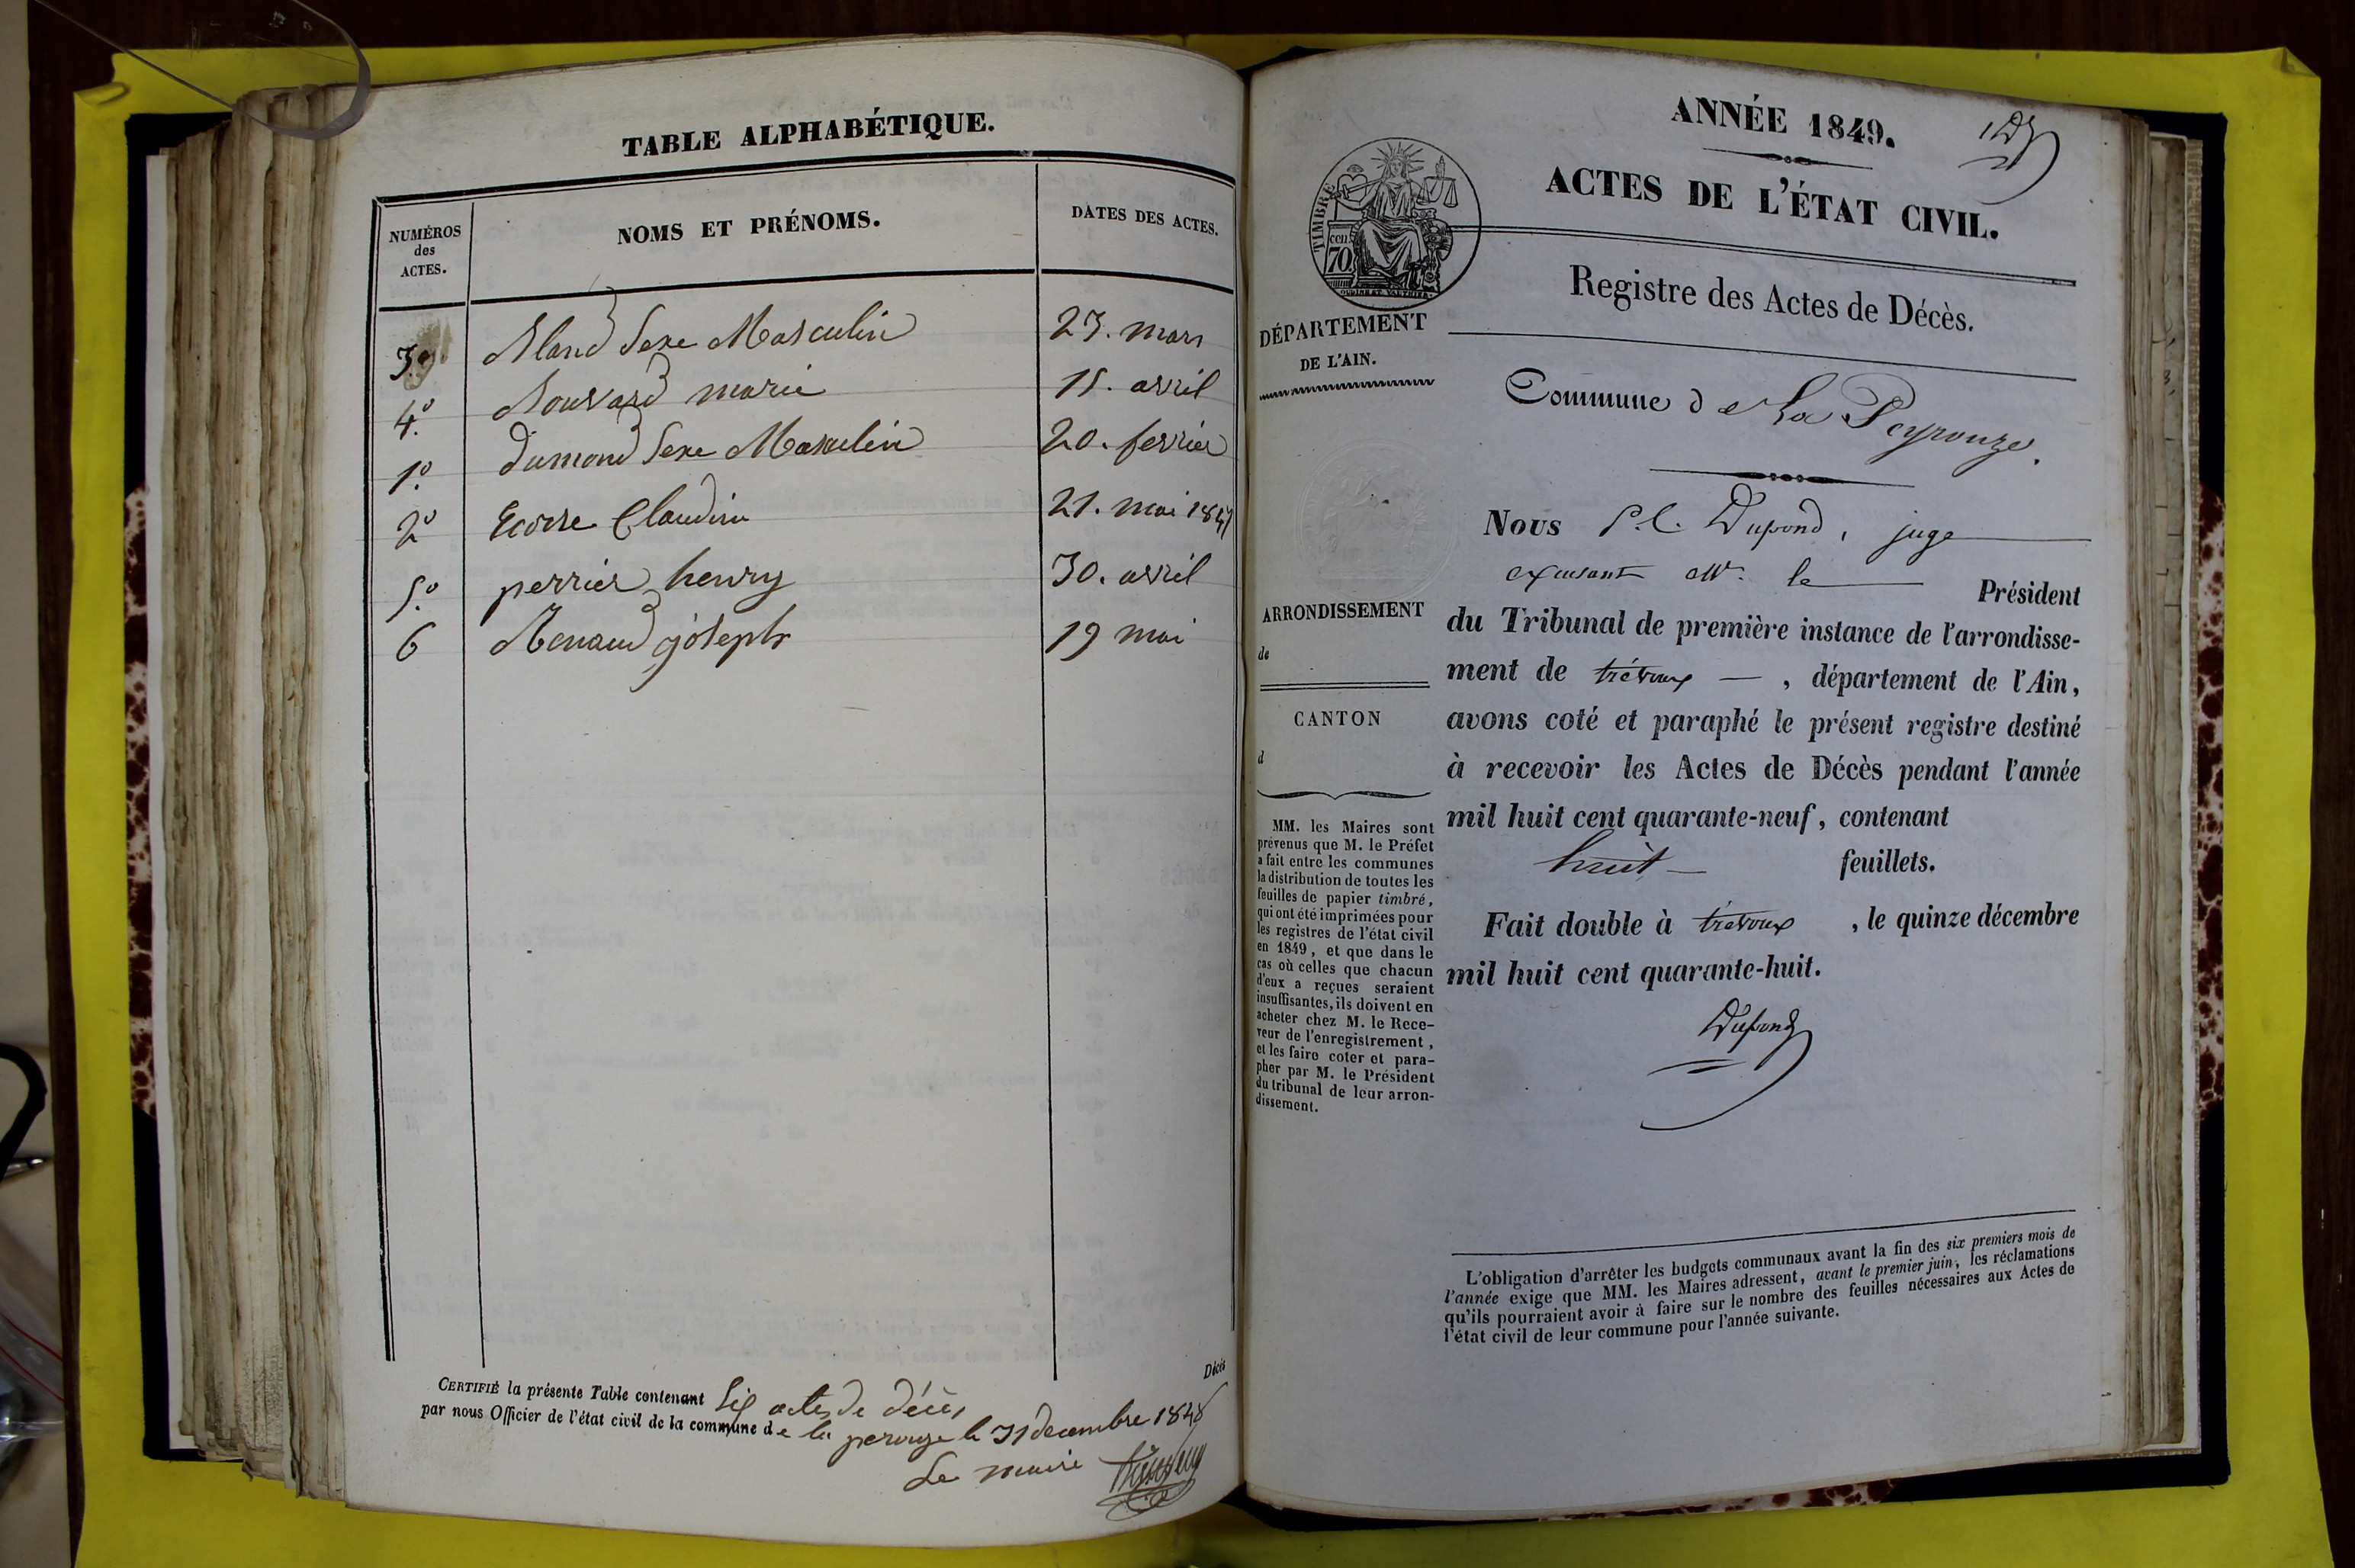 TABLE ALPHABÉTIQUE.
NUMÉROS
des
ACTES.
NOMS ET PRÉNOMS.
DATES DES ACTES.
3º Bland Sexe Masculin 23. mars
4º Bouvard marie 15. avril
1º dumond Sexe Masculin 20. fevrier
2º Ecosse Claudine 21. mai 184
5º perrier henry 30. avril
6 Renaud joseph 19 mai
Décès
CERTIFIÉ la présente Table contenant Six actes de décès
par nous Officier de l'état civil de la commune de la perouze le 31 decembre 1848
Le maire
ANNÉE 1849.
ACTES DE L'ÉTAT CIVIL.
Registre des Actes de Décès.
TIMBRE
cen.
70
DÉPARTEMENT
DE L'AIN.
Commune de La Peyrouze.
Nous P. C. Dupond, juge
excusant Mr. le Président
du Tribunal de première instance de l'arrondisse-
ment de trévoux — , département de l'Ain,
avons coté et paraphé le présent registre destiné
à recevoir les Actes de Décès pendant l'année
mil huit cent quarante-neuf, contenant
huit — feuillets.
Fait double à trévoux , le quinze décembre
mil huit cent quarante-huit.
Dupond
ARRONDISSEMENT
de
CANTON
d
MM. les Maires sont
prévenus que M. le Préfet
a fait entre les communes
la distribution de toutes les
feuilles de papier timbré,
qui ont été imprimées pour
les registres de l'état civil
en 1849, et que dans le
cas où celles que chacun
d'eux a reçues seraient
insuffisantes, ils doivent en
acheter chez M. le Rece-
veur de l'enregistrement,
et les faire coter et para-
pher par M. le Président
du tribunal de leur arron-
dissement.
L'obligation d'arrêter les budgets communaux avant la fin des six premiers mois de
l'année exige que MM. les Maires adressent, avant le premier juin, les réclamations
qu'ils pourraient avoir à faire sur le nombre des feuilles nécessaires aux Actes de
l'état civil de leur commune pour l'année suivante.